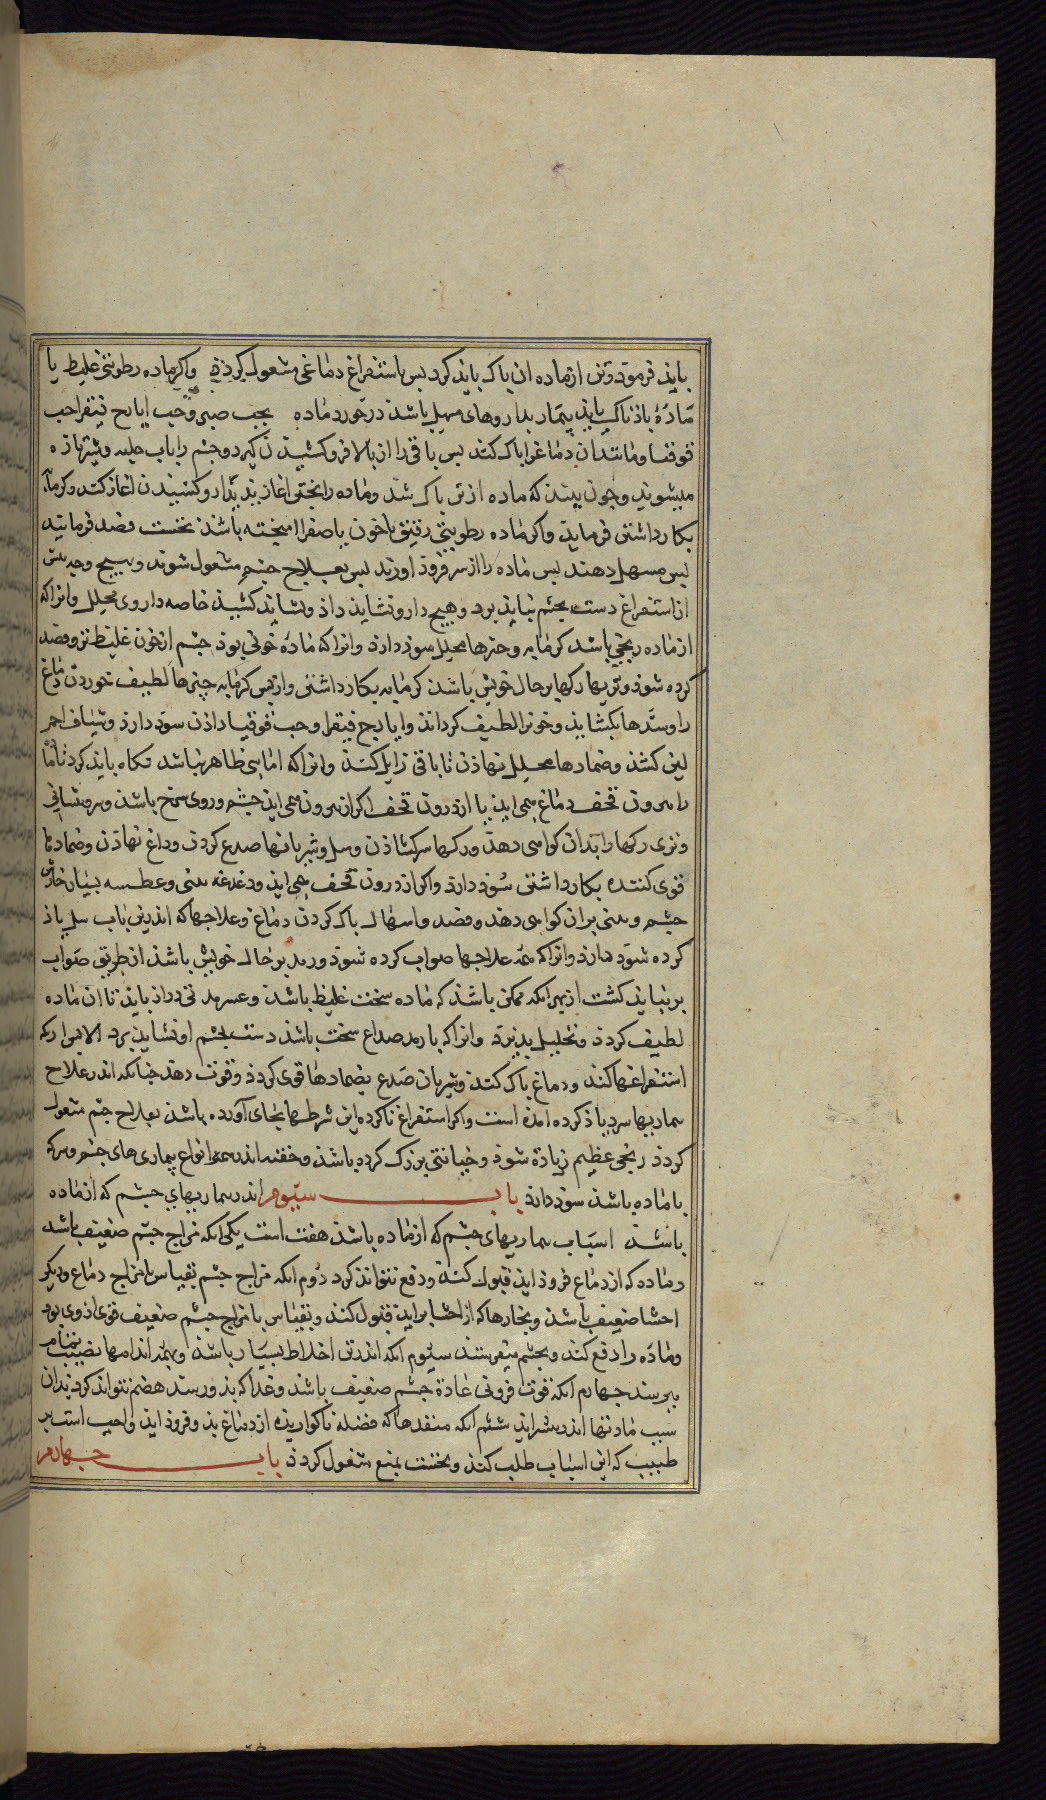 باید فرمود وتن از ماده ان پاک باید کرد پس باستفراغ دماغی مشغول کردند واکر ماده رطوبتی غلیظ یا
مادهٔ باذناک باید بیمار بداروهای مسهل باشد درخورد ماده بحب صبر وحب ایارج فیقرا حب
قوقیا ومانند ان دماغ را پاک کنند پس باقی را از بالا فرو کشیدن کیرد وچشم را باب حلبه وشیر تازه
میشویند وچون بینند که ماده از تن پاک شد وماده را پختی اغازیذ بدارو کشیدن اغاز کنند وکرمابه
بکار داشتن فرمایند واکر ماده رطوبتی رقیق باخون یا صفرا امیخته باشد نخست فصد فرمایند
پس مسهل دهند پس ماده را از سر فرود اورند پس بعلاج چشم مشغول شوند وبهیچ وجه پیش
از استفراغ دست بچشم نباید برد وهیچ دارو نشاید داد ونشاید کشید خاصه داروی محلل وانرا که
از ماده ریحی باشد کرمابه وچیزها محلل سود دارد وانرا که مادهٔ خونی بود چشم از خون غلیظ تر وفصد
کرده شود وتریها رکها بر حال خویش باشد کرمابه بکار داشتن واز پس کرمابه چیزها لطیف خوردن دماغ
را وسدها بکشاید وخونرا لطیف کرداند وایارج فیقرا وحب قوقیا دادن سود دارد وشیاف احمر
لین کشند وضمادها محلل نهادن تا باقی زایل کند وانرا که اماسی ظاهر نباشد نکاه باید کرد تا ماده
را بیرون قحف دماغ همی اید یا اندرون قحف اکر از بیرون همی اید چشم وروی سرخ باشد وبر پیشانی
وتری رکها را بدان کواهی دهد ورکها سر کشادن وسل وشریانها صدغ کردن وداغ نهادن وضمادها
قوی کننده بکار داشتن سود دارد واکر اندرون قحف همی اید ودغدغه بینی وعطسه بسیار خارش
چشم وبینی بران کواهی دهد وفصد واسهال پاک کردن دماغ وعلاجها که اندرین باب سل یاد
کرده شود دارد وانرا که همه علاجها صواب کرده شود ورمد بر حال خویش باشد از طریق صواب
بر نباید کشت از بهر انکه ممکن باشد که ماده سخت غلیظ باشد وعسر مدتی دراز باید تا ان ماده
لطیف کردد وتحلیل پذیرد وانرا که با رمد صداع سخت باشد دست بچشم او نشاید برد الا پس از که
استفراغها کند ودماغ پاک کنند وشریان صدغ بضمادها قوی کردد وقوت دهد چنانکه اندر علاج
بیماریها سر یاد کرده امده است واکر استفراغ ناکرده این شرطها بجای آورده باشد بعلاج چشم مشغول
کردد رنجی عظیم زیاده شود وخیانتی بزرک کرده باشد وحقنه اندر همه انواع بیماری های چشم وهر که
با ماده باشد سود دارد باب سیوم اندر بیماریهای چشم که از ماده
باشد اسباب بیماریهای چشم که از ماده باشد هفت است یکی انکه مزاج چشم ضعیف باشد
وماده که از دماغ فرود اید قبول کند ودفع نتواند کرد دوم انکه مزاج چشم بقیاس با مزاج دماغ ودیکر
احشا ضعیف باشد وبخارها که از احشا براید قبول کند وبقیاس با مزاج چشم ضعیف قوی از وی بود
وماده را دفع کند وبچشم میفرستد سیوم انکه اندر تن اخلاط بسیار باشد وهمه اندامها نصیب تمام
برسد چهارم انکه قوت فزونی غاذه چشم ضعیف باشد وغذا که بذو رسد هضم نتواند کرد بدان
سبب مادتها اندر بیشر اید ششم انکه منفذها که فضله ناکواریده از دماغ بذو فرود اید واجب است بر
طبیب که این اسباب طلب کند ونخست بمنع مشغول کردد باب چهارم